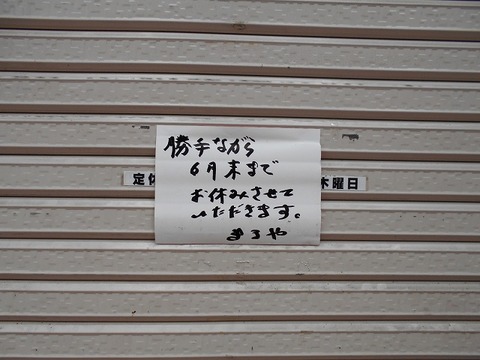 勝手ながら
6月末まで
お休みさせて
いただきます。
まるや
定休
木曜日